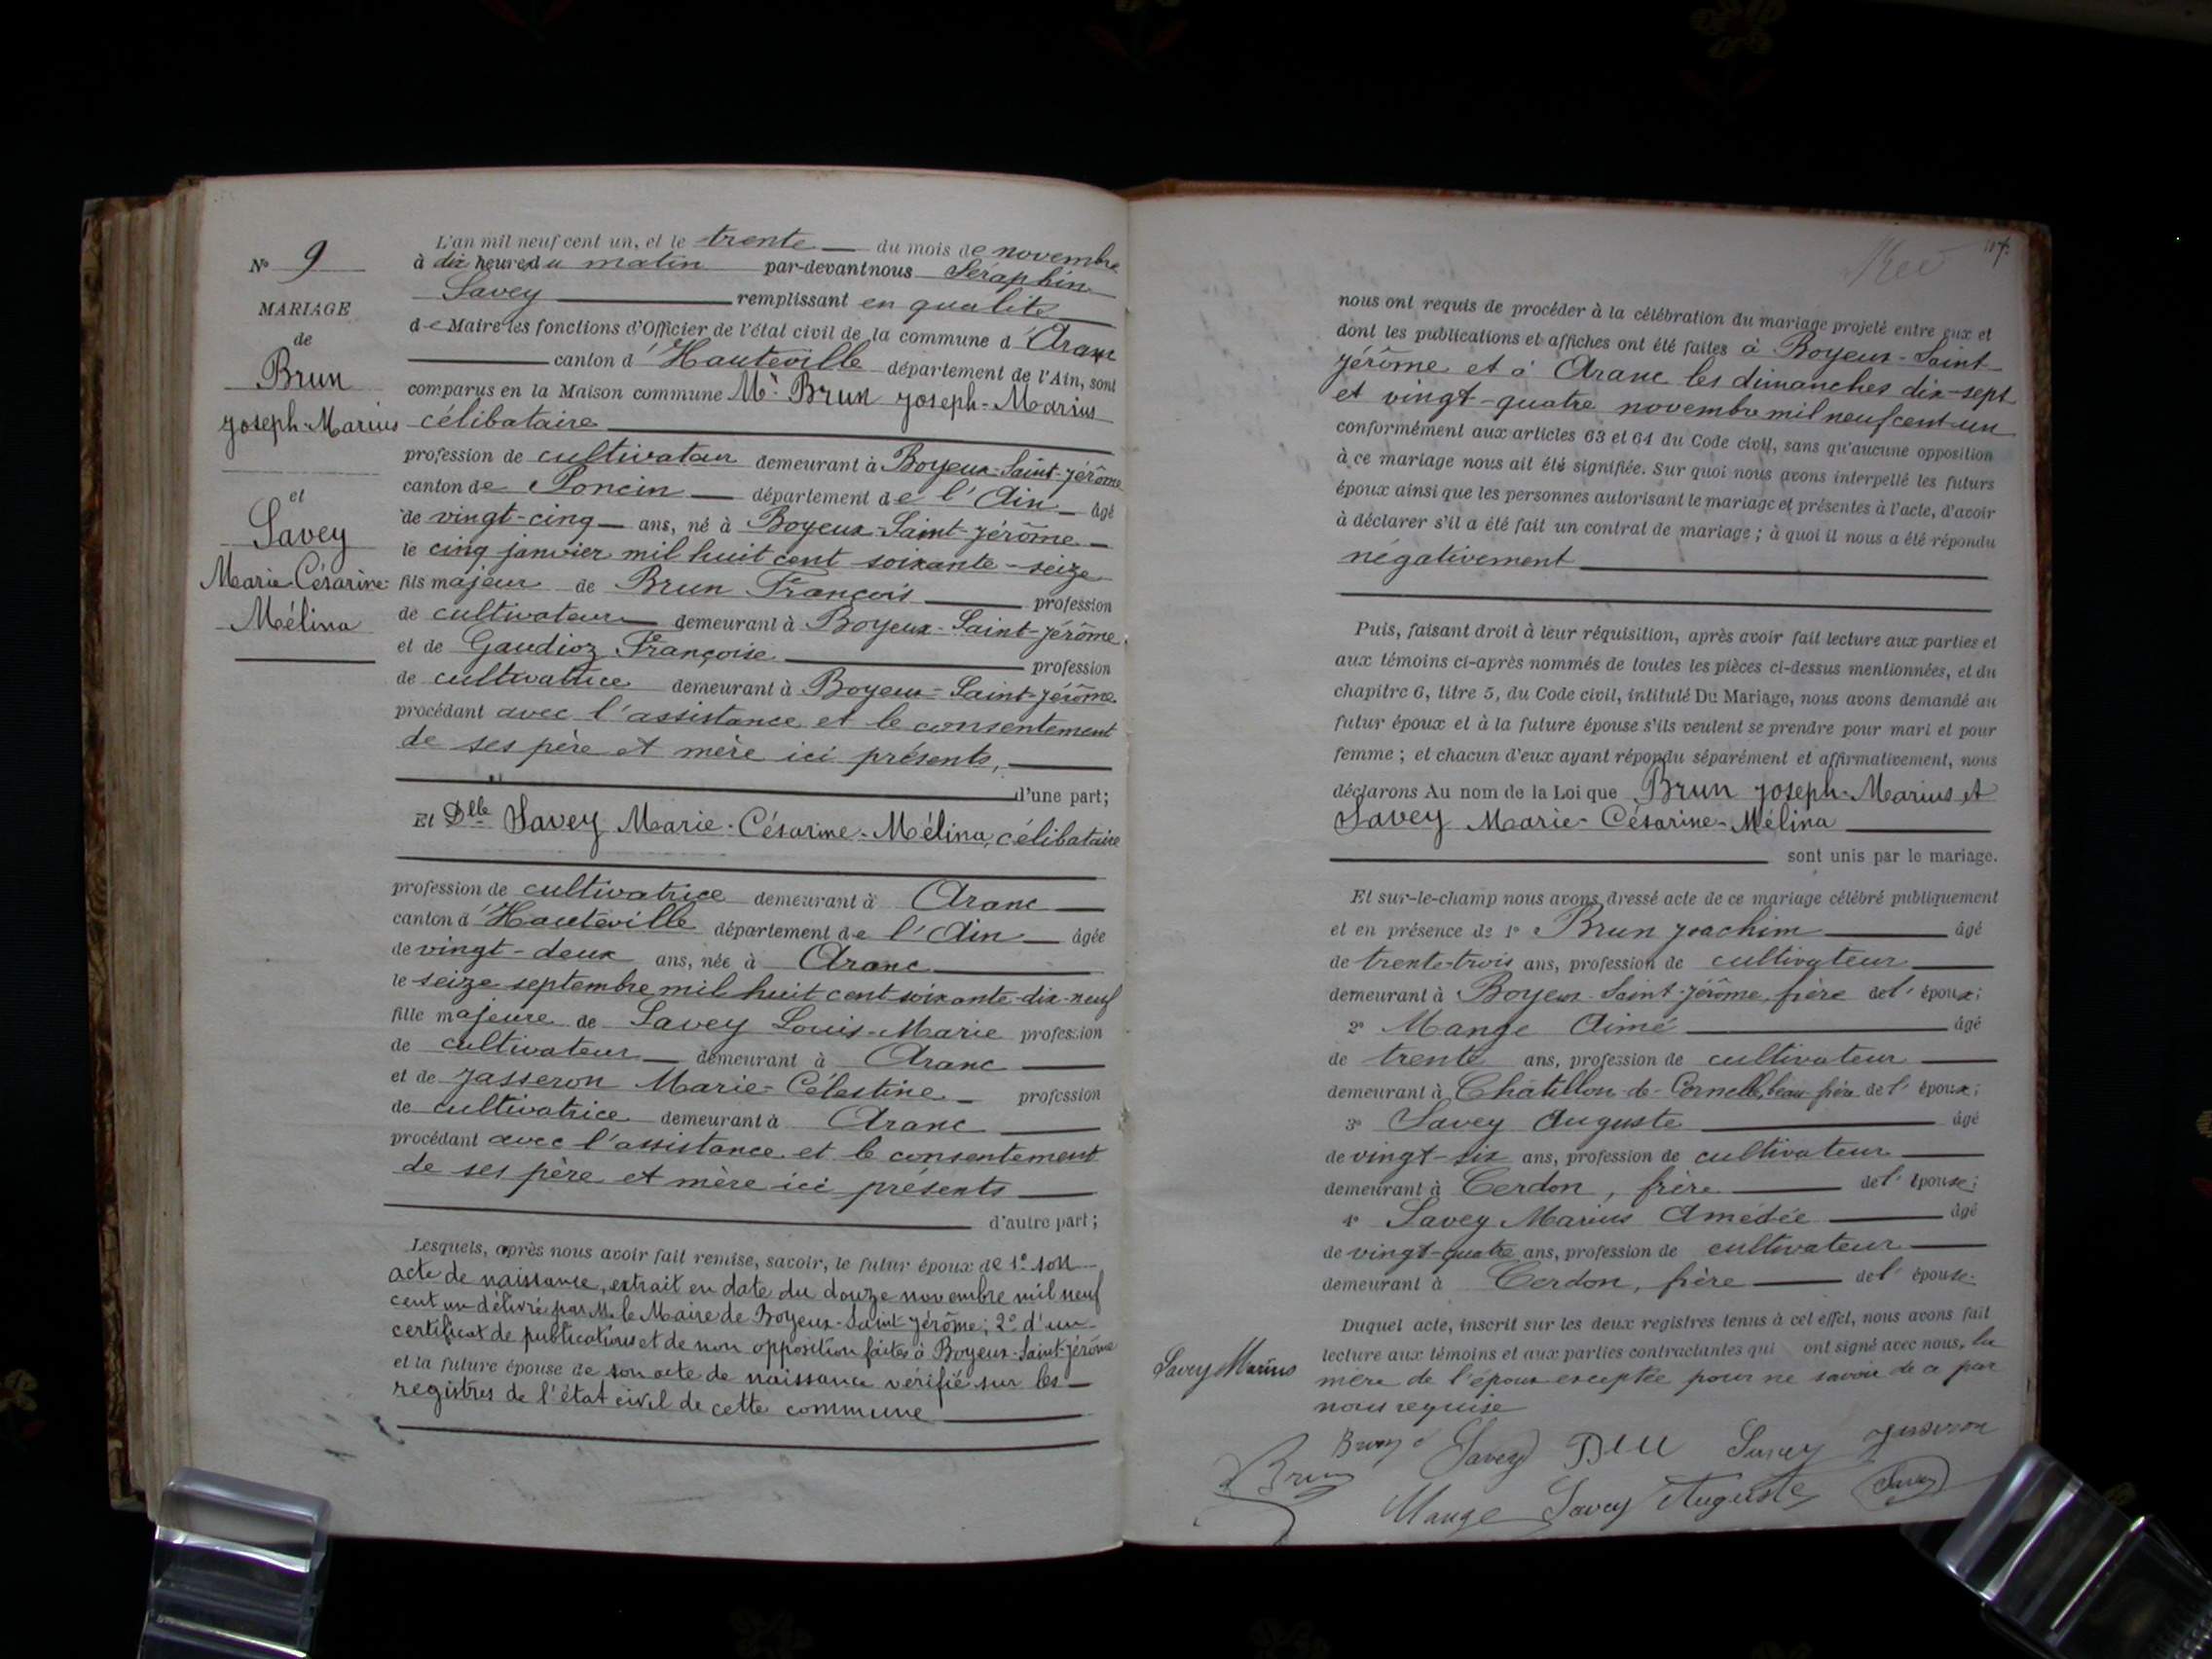 N° 9
MARIAGE
de
Brun
Joseph-Marius
et
Savey
Marie-Césarine-
Mélina
L'an mil neuf cent un, et le trente du mois de novembre
à dix heures du matin par-devant nous Séraphin
Savey remplissant en qualité
de Maire les fonctions d'Officier de l'état civil de la commune d'Aranc
canton d'Hauteville département de l'Ain, sont
comparus en la Maison commune Mr Brun Joseph-Marius
célibataire
profession de cultivateur demeurant à Boyeux-Saint-Jérôme
canton de Poncin département de l'Ain âgé
de vingt-cinq ans, né à Boyeux-Saint-Jérôme
le cinq janvier mil huit cent soixante-seize
fils majeur de Brun François profession
de cultivateur demeurant à Boyeux-Saint-Jérôme
et de Gaudioz Françoise profession
de cultivatrice demeurant à Boyeux-Saint-Jérôme
procédant avec l'assistance et le consentement
de ses père et mère ici présents,
d'une part;
Et Dlle Savey Marie-Césarine-Mélina, célibataire
profession de cultivatrice demeurant à Aranc
canton d'Hauteville département de l'Ain âgée
de vingt-deux ans, née à Aranc
le seize septembre mil huit cent soixante-dix-neuf
fille majeure de Savey Louis-Marie profession
de cultivateur demeurant à Aranc
et de Jasseron Marie-Célestine profession
de cultivatrice demeurant à Aranc
procédant avec l'assistance et le consentement
de ses père et mère ici présents
d'autre part;
Lesquels, après nous avoir fait remise, savoir, le futur époux de 1° son
acte de naissance, extrait en date du douze novembre mil neuf
cent un délivré par M. le Maire de Boyeux-Saint-Jérôme; 2° d'un
certificat de publications et de non opposition faites à Boyeux-Saint-Jérôme
et la future épouse de son acte de naissance vérifié sur les
registres de l'état civil de cette commune
107
nous ont requis de procéder à la célébration du mariage projeté entre eux et
dont les publications et affiches ont été faites à Boyeux-Saint-
Jérôme et à Aranc les dimanches dix-sept
et vingt-quatre novembre mil neuf cent un
conformément aux articles 63 et 64 du Code civil, sans qu'aucune opposition
à ce mariage nous ait été signifiée. Sur quoi nous avons interpellé les futurs
époux ainsi que les personnes autorisant le mariage et présentes à l'acte, d'avoir
à déclarer s'il a été fait un contrat de mariage; à quoi il nous a été répondu
négativement
Puis, faisant droit à leur réquisition, après avoir fait lecture aux parties et
aux témoins ci-après nommés de toutes les pièces ci-dessus mentionnées, et du
chapitre 6, titre 5, du Code civil, intitulé Du Mariage, nous avons demandé au
futur époux et à la future épouse s'ils veulent se prendre pour mari et pour
femme; et chacun d'eux ayant répondu séparément et affirmativement, nous
déclarons Au nom de la Loi que Brun Joseph-Marius et
Savey Marie-Césarine-Mélina
sont unis par le mariage.
Et sur-le-champ nous avons dressé acte de ce mariage célébré publiquement
et en présence de 1° Brun Joachim âgé
de trente-trois ans, profession de cultivateur
demeurant à Boyeux-Saint-Jérôme, frère de l'époux;
2° Mange Aimé âgé
de trente ans, profession de cultivateur
demeurant à Châtillon-de-Cornelle, beau-frère de l'époux;
3° Savey Auguste âgé
de vingt-six ans, profession de cultivateur
demeurant à Cerdon, frère de l'épouse;
4° Savey Marius Amédée âgé
de vingt-quatre ans, profession de cultivateur
demeurant à Cerdon, frère de l'épouse.
Duquel acte, inscrit sur les deux registres tenus à cet effet, nous avons fait
lecture aux témoins et aux parties contractantes qui ont signé avec nous, la
mère de l'époux exceptée pour ne savoir de ce par
nous requise
Savey Marius
Savey Savey Jasseron
Brun
Mange Savey Auguste Savey